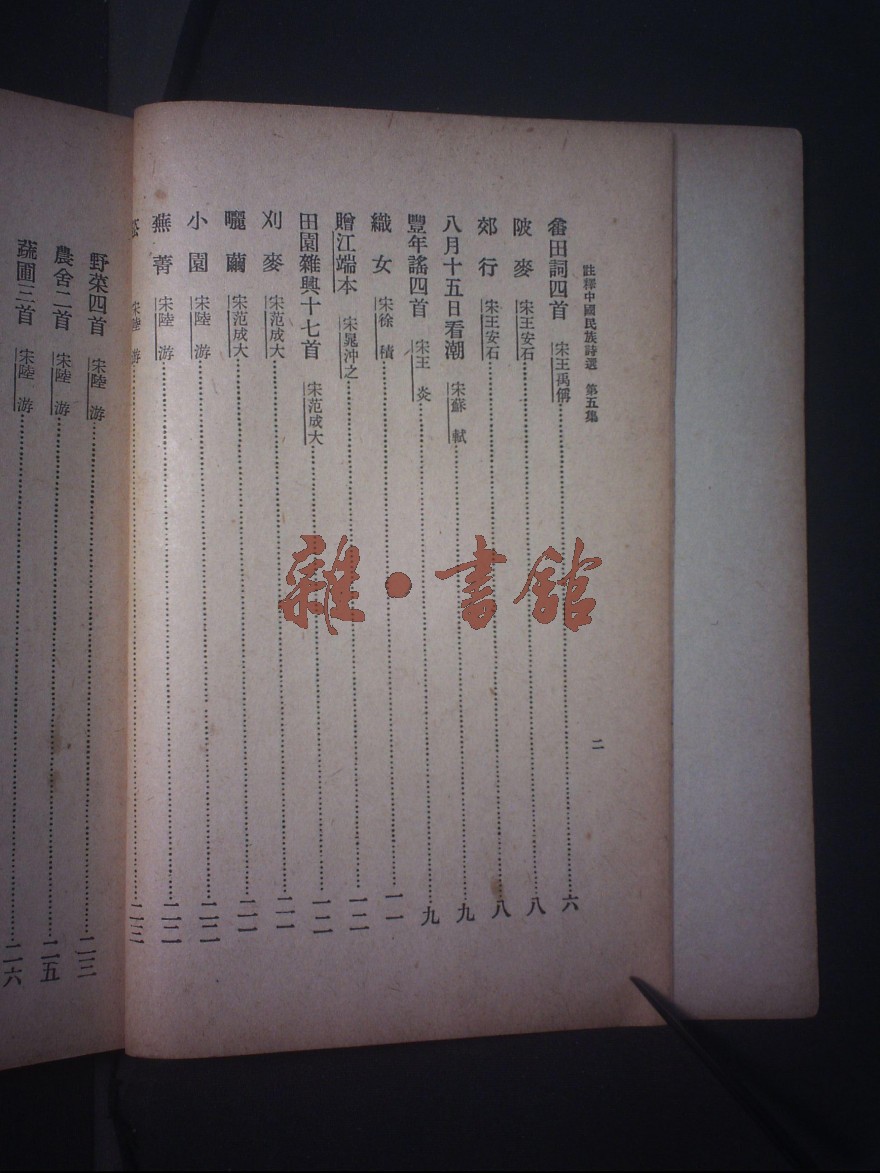 註釋中國民族詩選　第五集
二
畬田詞四首　宋王禹偁……六
陂麥　宋王安石……八
郊行　宋王安石……八
八月十五日看潮　宋蘇軾……九
豐年謠四首　宋王炎……九
織女　宋徐積……一一
贈江端本　宋晁沖之……一二
田園雜興十七首　宋范成大……一二
刈麥　宋范成大……二一
曬繭　宋范成大……二一
小園　宋陸游……二二
蕪菁　宋陸游……二二
宋陸游……二三
野菜四首　宋陸游……二三
農舍二首　宋陸游……二五
蔬圃三首　宋陸游……二六
雜·書館